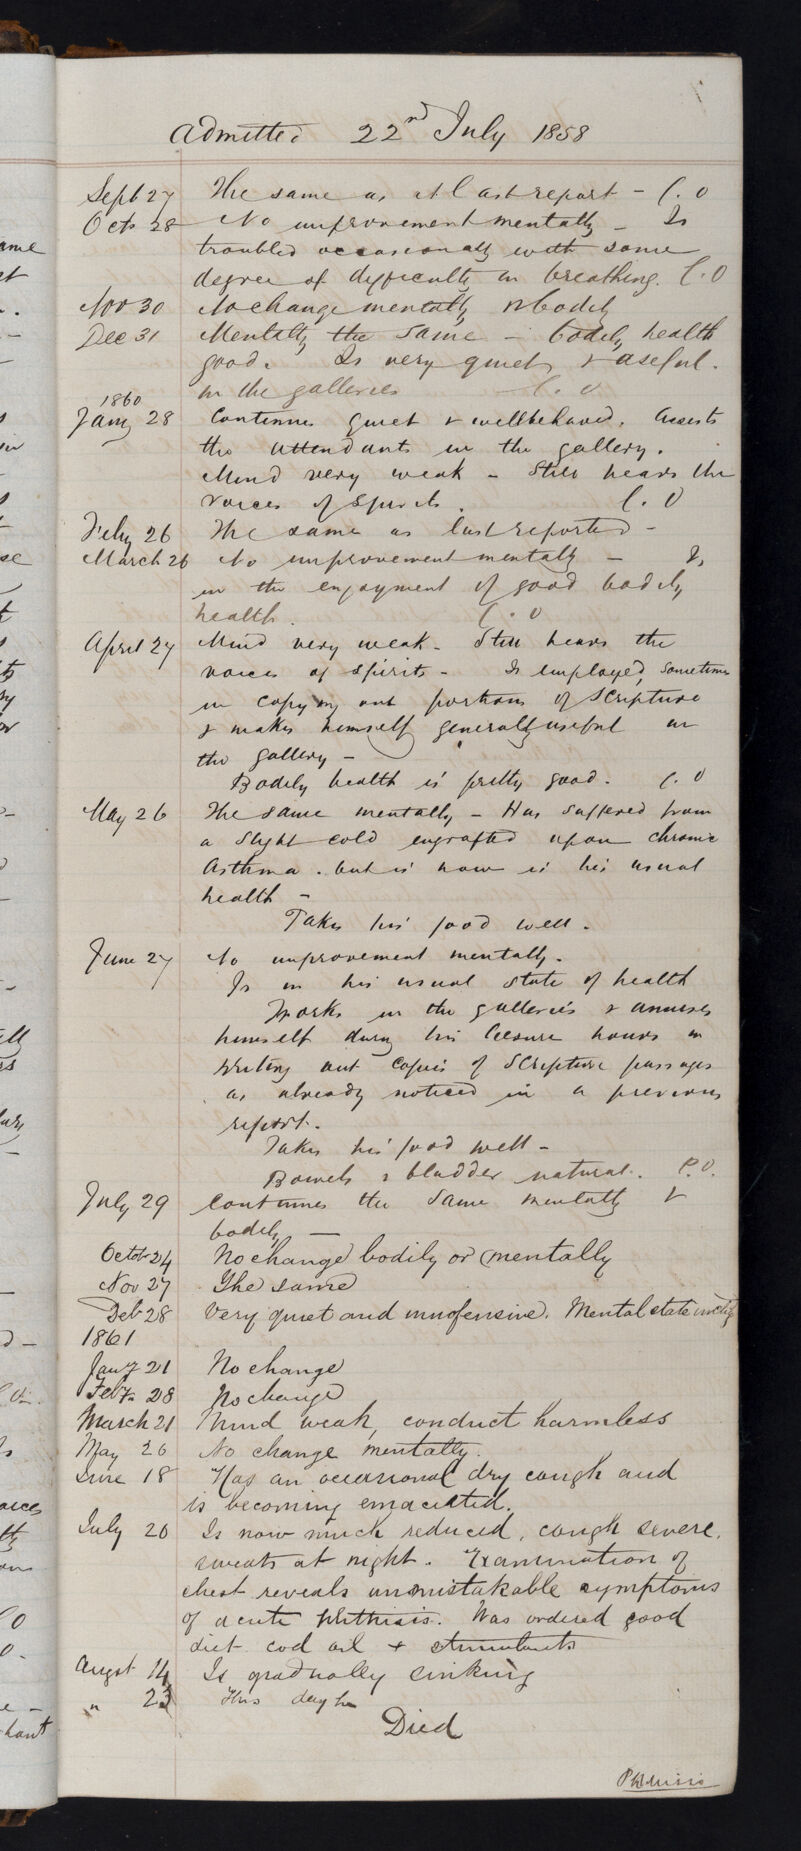 Admitted 22nd July 1858
Sept 27 The same as at last report - C.O
Oct 28 No improvement mentally - Is
troubled occasionally with some
degree of difficulty in breathing. C.O
Nov 30 No change mentally or bodily
Dec 31 Mentally the same - bodily health
good. Is very quiet & useful.
in the galleries C.O
1860
Jany 28 Continues quiet & wellbehaved. Assists
the attendants in the gallery.
Mind very weak - Still hears the
voices of spirits. C.O
Feby 26 The same as last reported -
March 26 No improvement mentally - Is
in the enjoyment of good bodily
health. C.O
April 27 Mind very weak - Still hears the
voices of spirits - Is employed, sometimes
in copying out portions of Scripture
& makes himself generally useful in
the gallery -
Bodily health is pretty good. C.O
May 26 The same mentally - Has suffered from
a slight cold engrafted upon chronic
Asthma. but is now in his usual
health -
Takes his food well.
June 27 No improvement mentally.
Is in his usual state of health
Works in the galleries & amuses
himself during his leisure hours in
writing out copies of Scripture passages
as already noticed in a previous
report.
Takes his food well -
Bowels & bladder natural. C.O.
July 29 Continues the same mentally &
bodily -
Octobr 24 No change bodily or mentally
Nov 27 The same
Deb 28 Very quiet and innofensive. Mental state
1861
Jany 21 No change
Feby 28 No change
March 21 Mind weak, conduct harmless
May 26 No change mentally.
June 18 Has an occasional dry cough and
is becoming emaciated.
July 20 Is now much reduced, cough severe,
sweats at night. Examination of
chest reveals unmistakable symptoms
of acute phthisis. Was ordered good
diet cod oil & stimulants
Augst 14 Is gradually sinking
" 23 This day he
Died
Phthisis